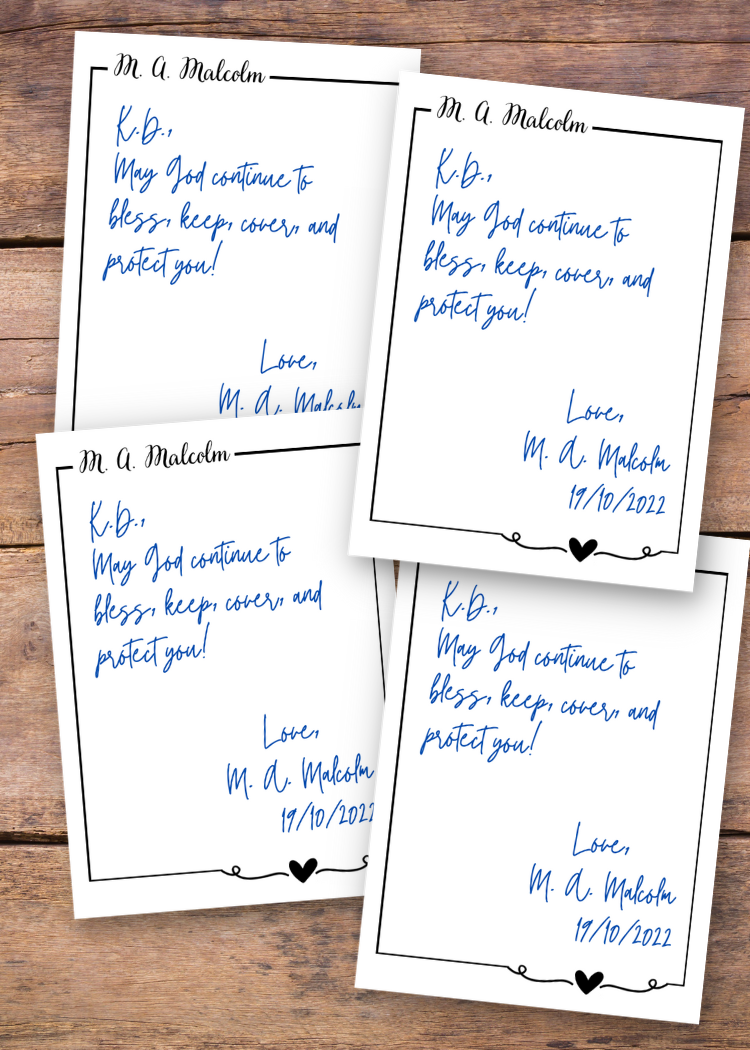 M. A. Malcolm
K.D.,
May God continue to
bless, keep, cover, and
protect you!
Love,
M. A. Malcolm
M. A. Malcolm
K.D.,
May God continue to
bless, keep, cover, and
protect you!
Love,
M. A. Malcolm
19/10/2022
M. A. Malcolm
K.D.,
May God continue to
bless, keep, cover, and
protect you!
Love,
M. A. Malcolm
19/10/2022
K.D.,
May God continue to
bless, keep, cover, and
protect you!
Love,
M. A. Malcolm
19/10/2022